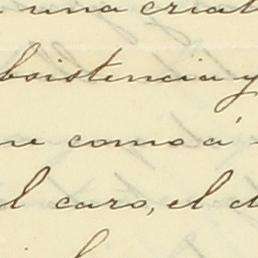 una criat
bsistencia y
ne como á
l caro, el d